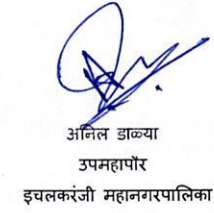 अनिल डाळ्या
उपमहापौर
इचलकरंजी महानगरपालिका